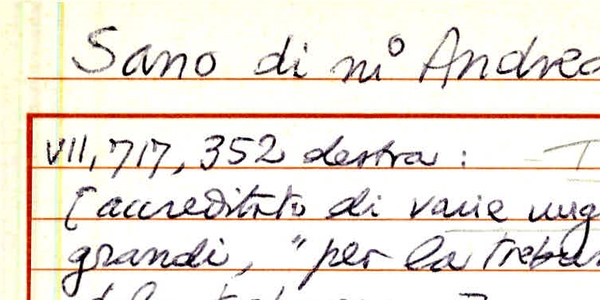 Sano di m° Andrea
VII, 717, 352 destra :
[accreditato di varie
grandi, "per la